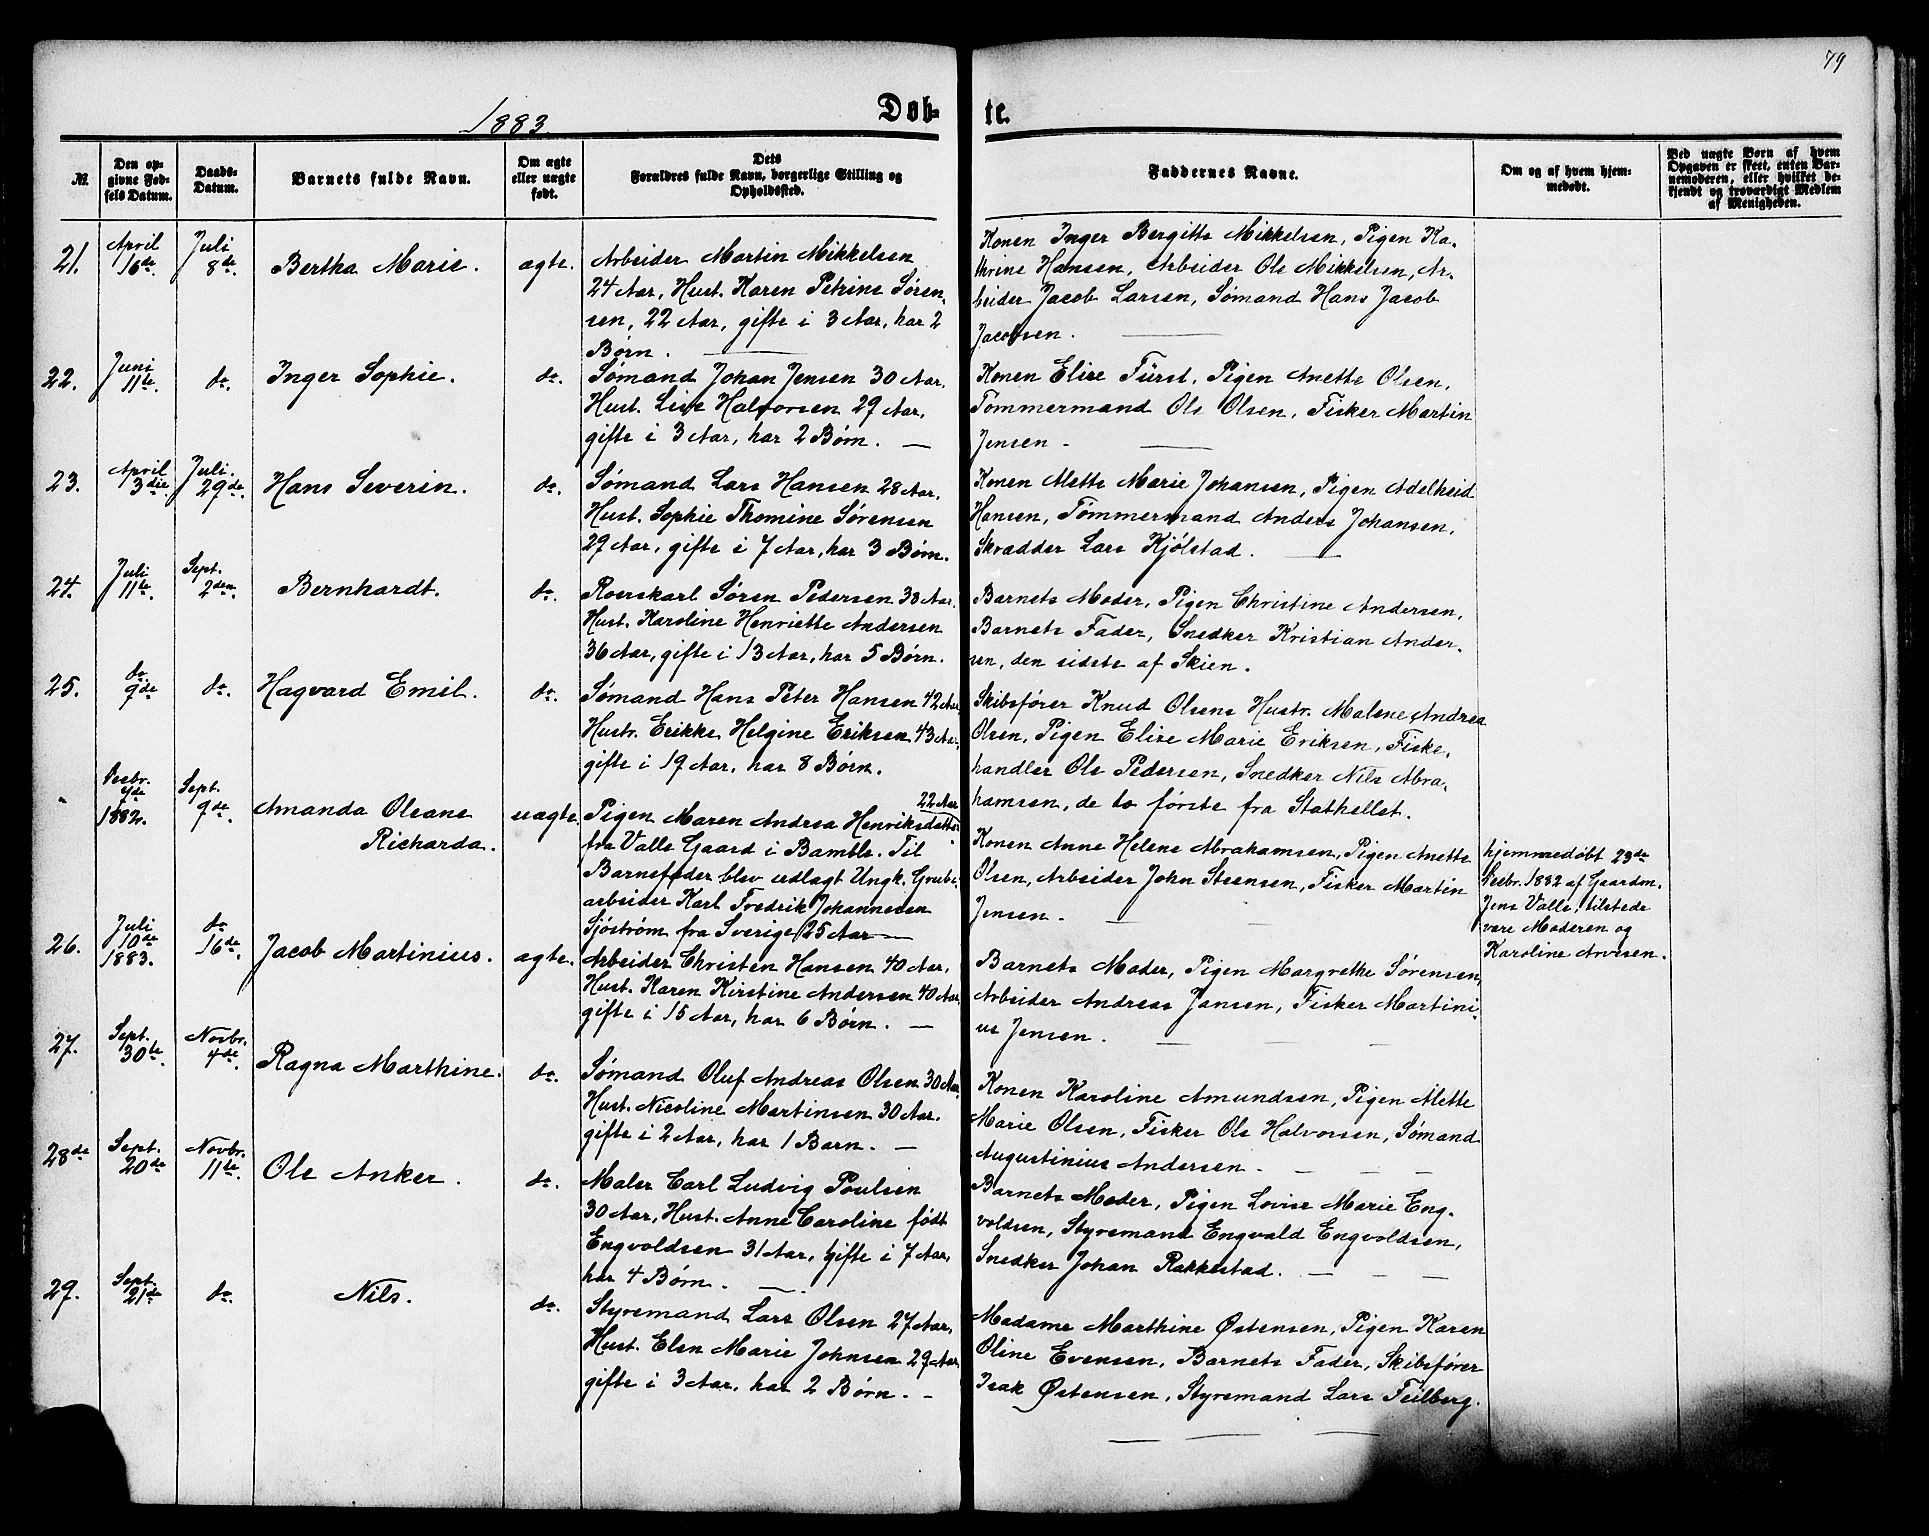 79
1883.
Døb-
te.
№.
Den op-
givne Fød-
sels Datum.
Daabs-
Datum.
Barnets fulde Navn.
Om ægte
eller uægte
født.
Dets
Forældres fulde Navn, borgerlige Stilling og
Opholdssted.
Faddernes Navne.
Om og af hvem hjem-
medøbt.
Ved uægte Børn af hvem
Opgaven er skeet, enten Bar-
nemoderen, eller hvilket be-
kjendt og troværdigt Medlem
af Menigheden.
21.
April
16de.
Juli
8de.
Bertha Marie.
ægte.
Arbeider Martin Mikkelsen
24 Aar, Hust. Karen Petrine Søren-
sen, 22 Aar, gifte i 3 Aar, har 2
Børn.
Konen Inger Bergitte Mikkelsen, Pigen Ka-
thrine Hansen, Arbeider Ole Mikkelsen, Ar-
beider Jacob Larsen, Sømand Hans Jacob
Jacobsen.
22.
Juni
11te.
do.
Inger Sophie.
do.
Sømand Johan Jensen 30 Aar,
Hust. Lise Halvorsen 29 Aar,
gifte i 3 Aar, har 2 Børn.
Konen Elise Fürst, Pigen Anette Olsen,
Tømmermand Ole Olsen, Fisker Martin
Jensen
23.
April
3die.
Juli.
29de.
Hans Severin.
do.
Sømand Lars Hansen 28 Aar,
Hust. Sophie Thomine Sørensen
29 Aar, gifte i 7 Aar, har 3 Børn.
Konen Mette Marie Johansen, Pigen Adelheid
Hansen, Tømmermand Anders Johansen,
Skrædder Lars Kjölstad.
24.
Juli
11te.
Sept.
2den.
Bernhardt.
do.
Roerskarl Søren Pedersen 38 Aar,
Hust. Karoline Henriette Andersen
36 Aar, gifte i 13 Aar, har 5 Børn.
Barnets Moder, Pigen Christine Andersen,
Barnets Fader, Snedker Kristian Ander-
sen, den sidste af Skien.
25.
do.
9de
do.
Hagvard Emil.
do.
Sømand Hans Peter Hansen 42 Aar,
Hustr. Erikke Helgine Eriksen 43 Aar,
gifte i 19 Aar, har 8 Børn.
Skibsfører Knud Olsens Hustr. Malene Andrea
Olsen, Pigen Elise Marie Eriksen, Fiske-
handler Ole Pedersen, Snedker Nils Abra-
hamsen, de to første fra Stathellet.
Decbr.
4de
1882.
Sept.
9de.
Amanda Oleane
Richarda.
uægte.
22 Aar
Pigen Maren Andrea Henriksdatter
fra Valle Gaard i Bamble. Til
Barnefader blev udlagt Ungk. Grube-
arbeider Karl Fredrik Johannesen
Sjöström fra Sverige, 25 Aar
Konen Anne Helene Abrahamsen, Pigen Anette
Olsen, Arbeider John Steensen, Fisker Martin
Jensen.
hjemmedøbt 23de
Decbr. 1882 af Gaardm.
Jens Valle; tilstede
vare Moderen og
Karoline Arvesen.
26.
Juli
10de
1883.
do
16de.
Jacob Martinius.
ægte.
Arbeider Christen Hansen 40 Aar,
Hust. Karen Kirstine Andersen 40 Aar,
gifte i 15 Aar, har 6 Børn.
Barnets Moder, Pigen Margrethe Sørensen,
Arbeider Andreas Jansen, Fisker Martini-
us Jensen.
27.
Sept.
30te.
Novbr.
4de.
Ragna Marthine.
do.
Sømand Oluf Andreas Olsen 30 Aar,
Hust. Nicoline Martinsen 30 Aar.
gifte i 2 Aar, har 1 Barn.
Konen Karoline Amundsen, Pigen Mette
Marie Olsen, Fisker Ole Halvorsen, Sømand
Augustinius Andersen
28de
Sept.
20de
Novbr.
11te.
Ole Anker.
do.
Maler Carl Ludvig Poulsen
30 Aar, Hust. Anne Caroline født
Engvoldsen 31 Aar, gifte i 7 Aar,
har 4 Børn.
Barnets Moder, Pigen Lovise Marie Eng-
voldsen, Styremand Engvald Engvoldsen,
Snedker Johan Rakkestad.
29.
Sept.
21de
do.
Nils.
do.
Styremand Lars Olsen 27 Aar,
Hust. Elen Marie Johnsen 29 Aar,
gifte i 3 Aar, har 2 Børn.
Madame Marthine Østensen, Pigen Karen
Oline Evensen, Barnets Fader, Skibsfører
Isak Østensen, Styremand Lars Feilberg.